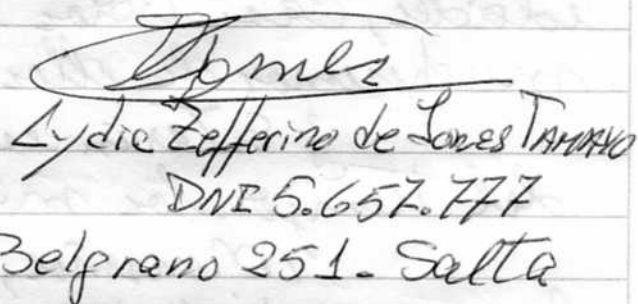 Lydia Zefferino de Tones TAMAYO
DNI 5.657.777
Belgrano 251. Salta